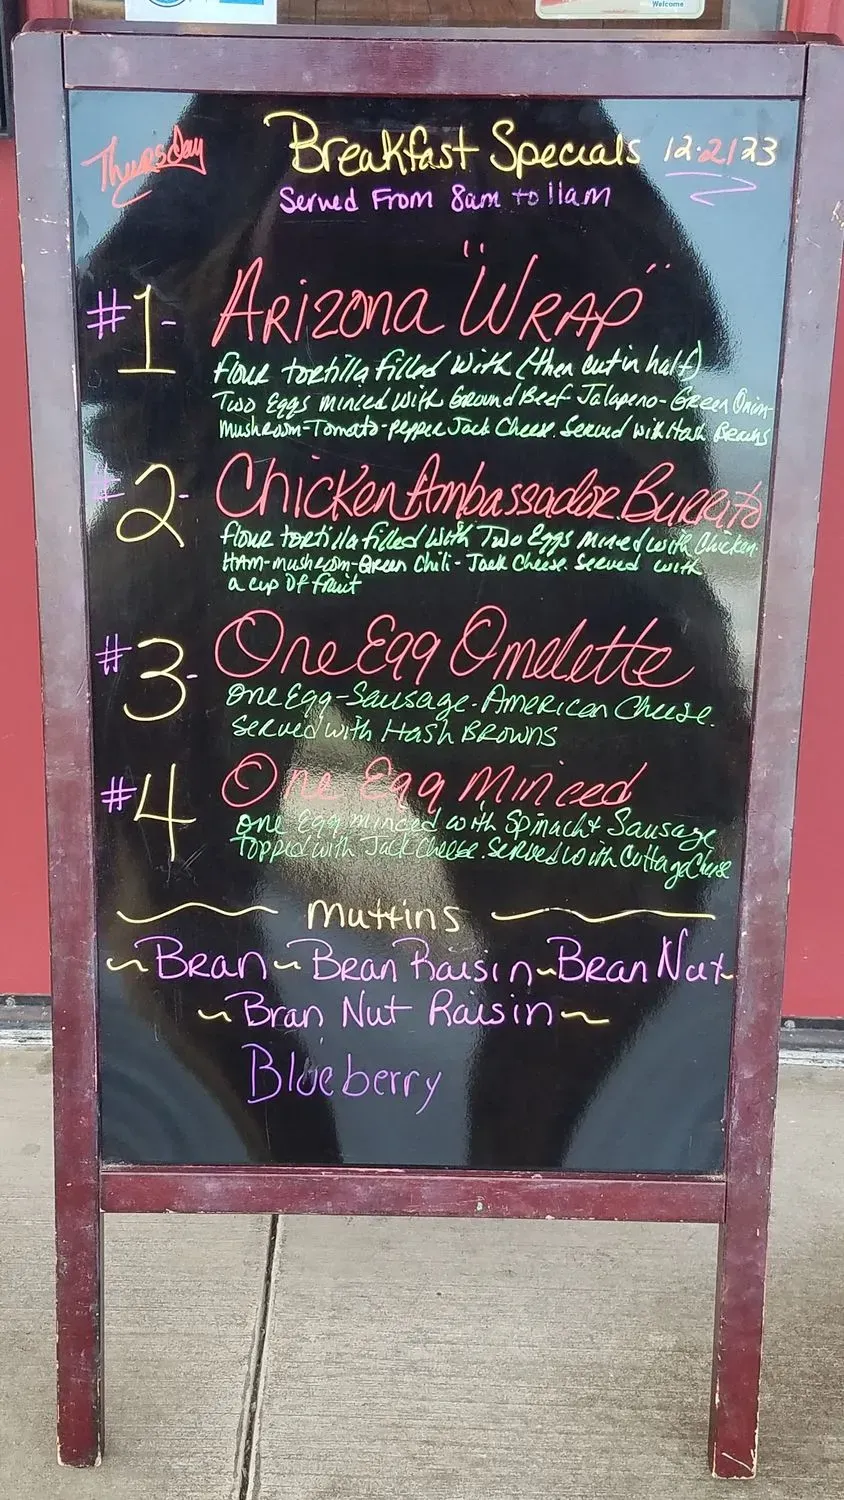 Welcome
Thursday
Breakfast Specials 12.21.23
Served From 8am to 11am
#1- Arizona "Wrap"
flour tortilla filled with (then cut in half)
Two Eggs minced with Ground Beef Jalapeno-Green Onion-
mushroom-Tomato-pepper Jack Cheese. Served with Hash Browns
#2- Chicken Ambassador Burrito
flour tortilla filled with Two Eggs mined with Chicken-
HAM-mushroom-Green Chili-Jack Cheese. Served with
a cup of fruit
#3- One Egg Omelette
one Egg-Sausage-American Cheese.
Served with Hash Browns
#4 One Egg Minced
one Egg minced with Spinach & Sausage
Topped with Jack Cheese. Served with Cottage Cheese
Muffins
~Bran~Bran Raisin~Bran Nut~
~Bran Nut Raisin~
Blueberry